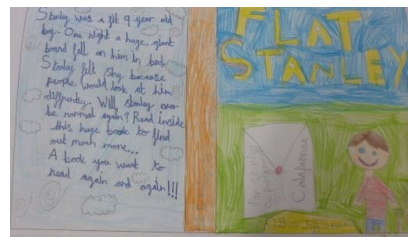 Stanley was a fit 9 year old
boy. One night a huge, giant
board fell on him in bed.
Stanley felt shy because
people would look at him
diffrently. Will Stanley ever
be normal again? Read inside
this huge book to find
out much more...
A book you want to
read again and again!!!
FLAT
STANLEY
California